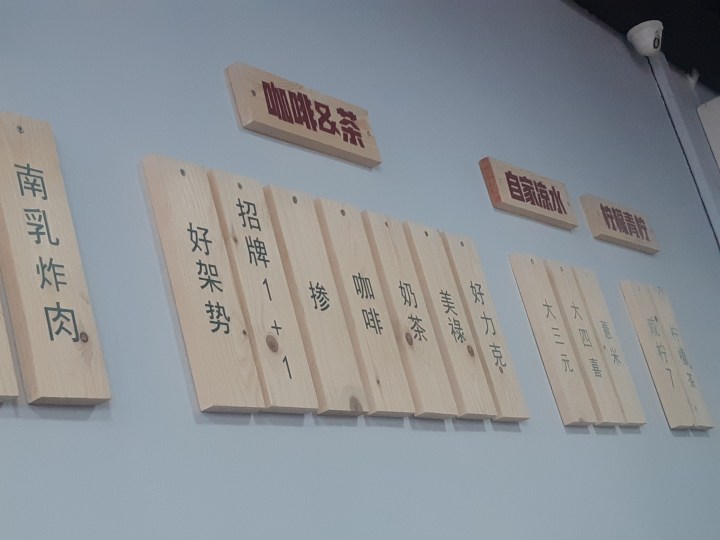 南乳炸肉
咖啡&茶
好架势
招牌1+1
掺
咖啡
奶茶
美禄
好力克
自家凉水
大三元
大四喜
薏米
柠檬青柠
咸柠7
柠檬茶